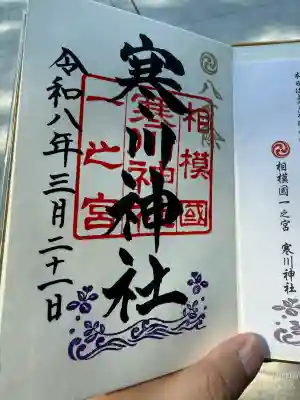 八方除
寒川神社
相模國
寒川神社
一之宮
令和八年三月二十一日
相模國一之宮 寒川神社